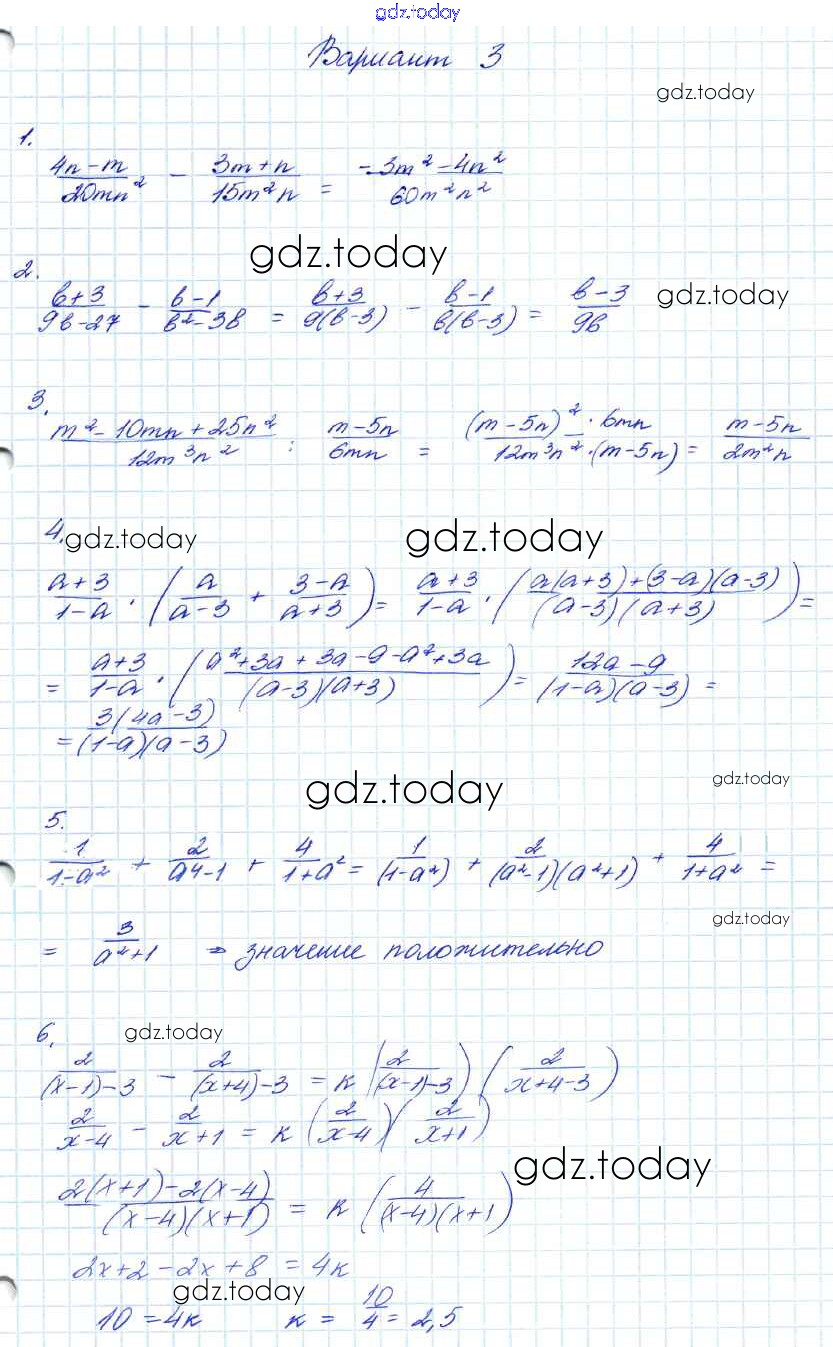 gdz.today
Вариант 3
gdz.today
1.
(4n-m)/(20mn²) - (3m+n)/(15m²n) = (-3m²-4n²)/(60m²n²)
gdz.today
2.
(b+3)/(9b-27) - (b-1)/(b²-3b) = (b+3)/(9(b-3)) - (b-1)/(b(b-3)) = (b-3)/(9b)
gdz.today
3.
(m²-10mn+25n²)/(12m³n²) : (m-5n)/(6mn) = ((m-5n)²·6mn)/(12m³n²·(m-5n)) = (m-5n)/(2m²n)
4.
gdz.today
gdz.today
(a+3)/(1-a) · (a/(a-3) + (3-a)/(a+3)) = (a+3)/(1-a) · ((a(a+3)+(3-a)(a-3))/((a-3)(a+3))) =
= (a+3)/(1-a) · ((a²+3a+3a-9-a²+3a)/((a-3)(a+3))) = (12a-9)/((1-a)(a-3)) =
= (3(4a-3))/((1-a)(a-3))
gdz.today
gdz.today
5.
1/(1-a²) + 2/(a⁴-1) + 4/(1+a²) = 1/(1-a²) + 2/((a²-1)(a²+1)) + 4/(1+a²) =
gdz.today
= 3/(a²+1) ⇒ значение положительно
6.
gdz.today
2/((x-1)-3) - 2/((x+4)-3) = k (2/((x-1)-3)) (2/(x+4-3))
2/(x-4) - 2/(x+1) = k (2/(x-4)) (2/(x+1))
gdz.today
(2(x+1)-2(x-4))/((x-4)(x+1)) = k (4/((x-4)(x+1)))
2x+2-2x+8 = 4k
gdz.today
10 = 4k k = 10/4 = 2,5